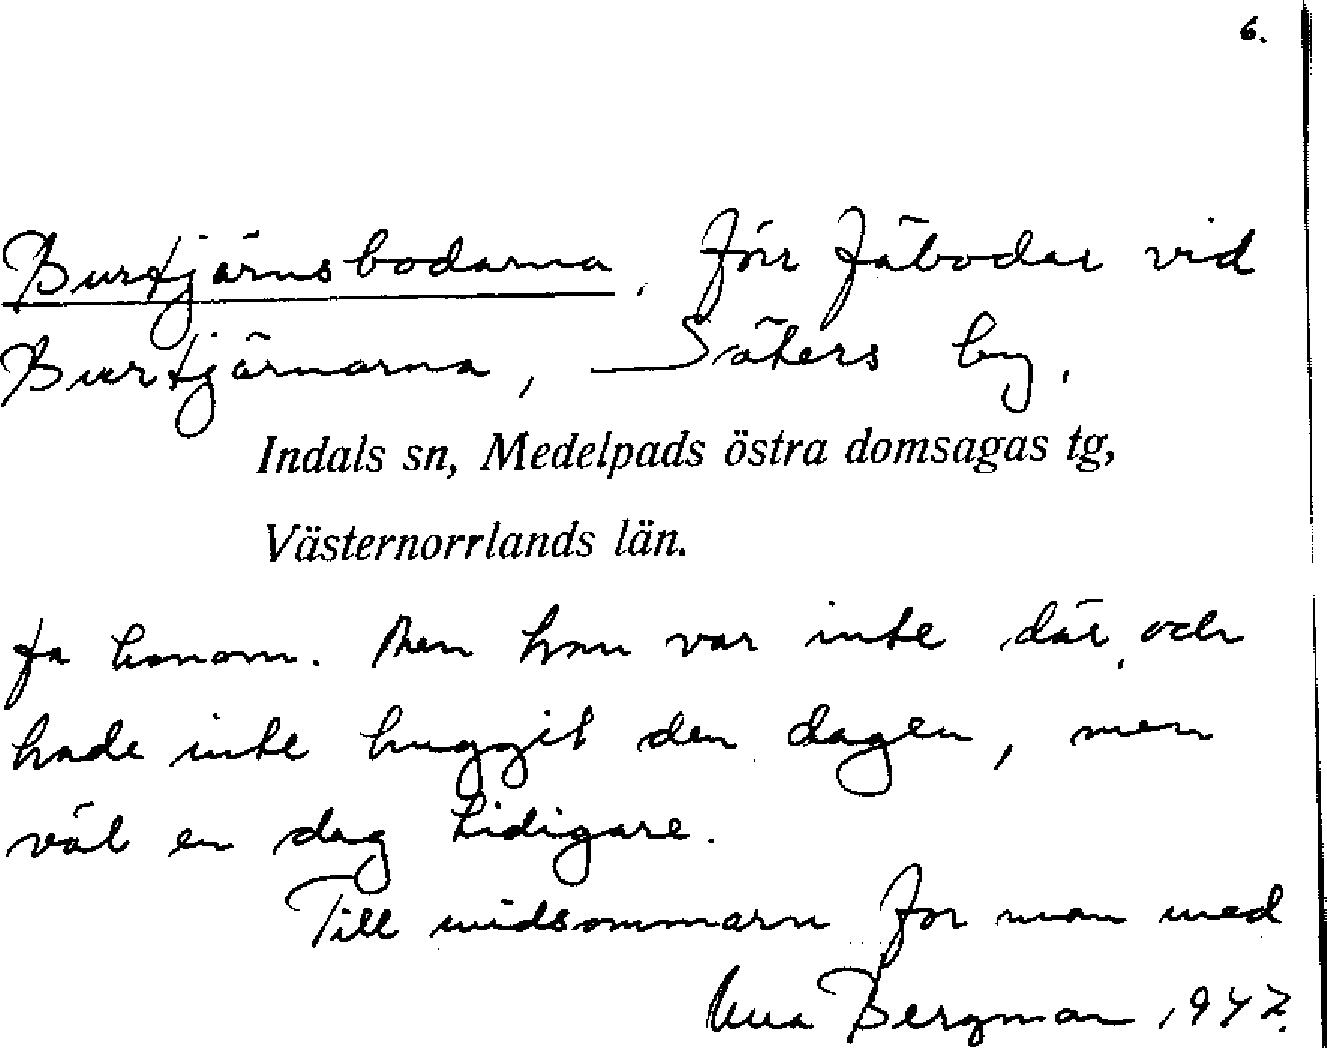 6.
Burtjärnsbodarna. Förr fäbodar vid
Burtjärnarna, Säters by.
Indals sn, Medelpads östra domsagas tg,
Västernorrlands län.
fa honom. Men han var inte där, och
hade inte huggit den dagen, men
väl en dag tidigare.
Till midsommarn for man med
Bergman 1942.